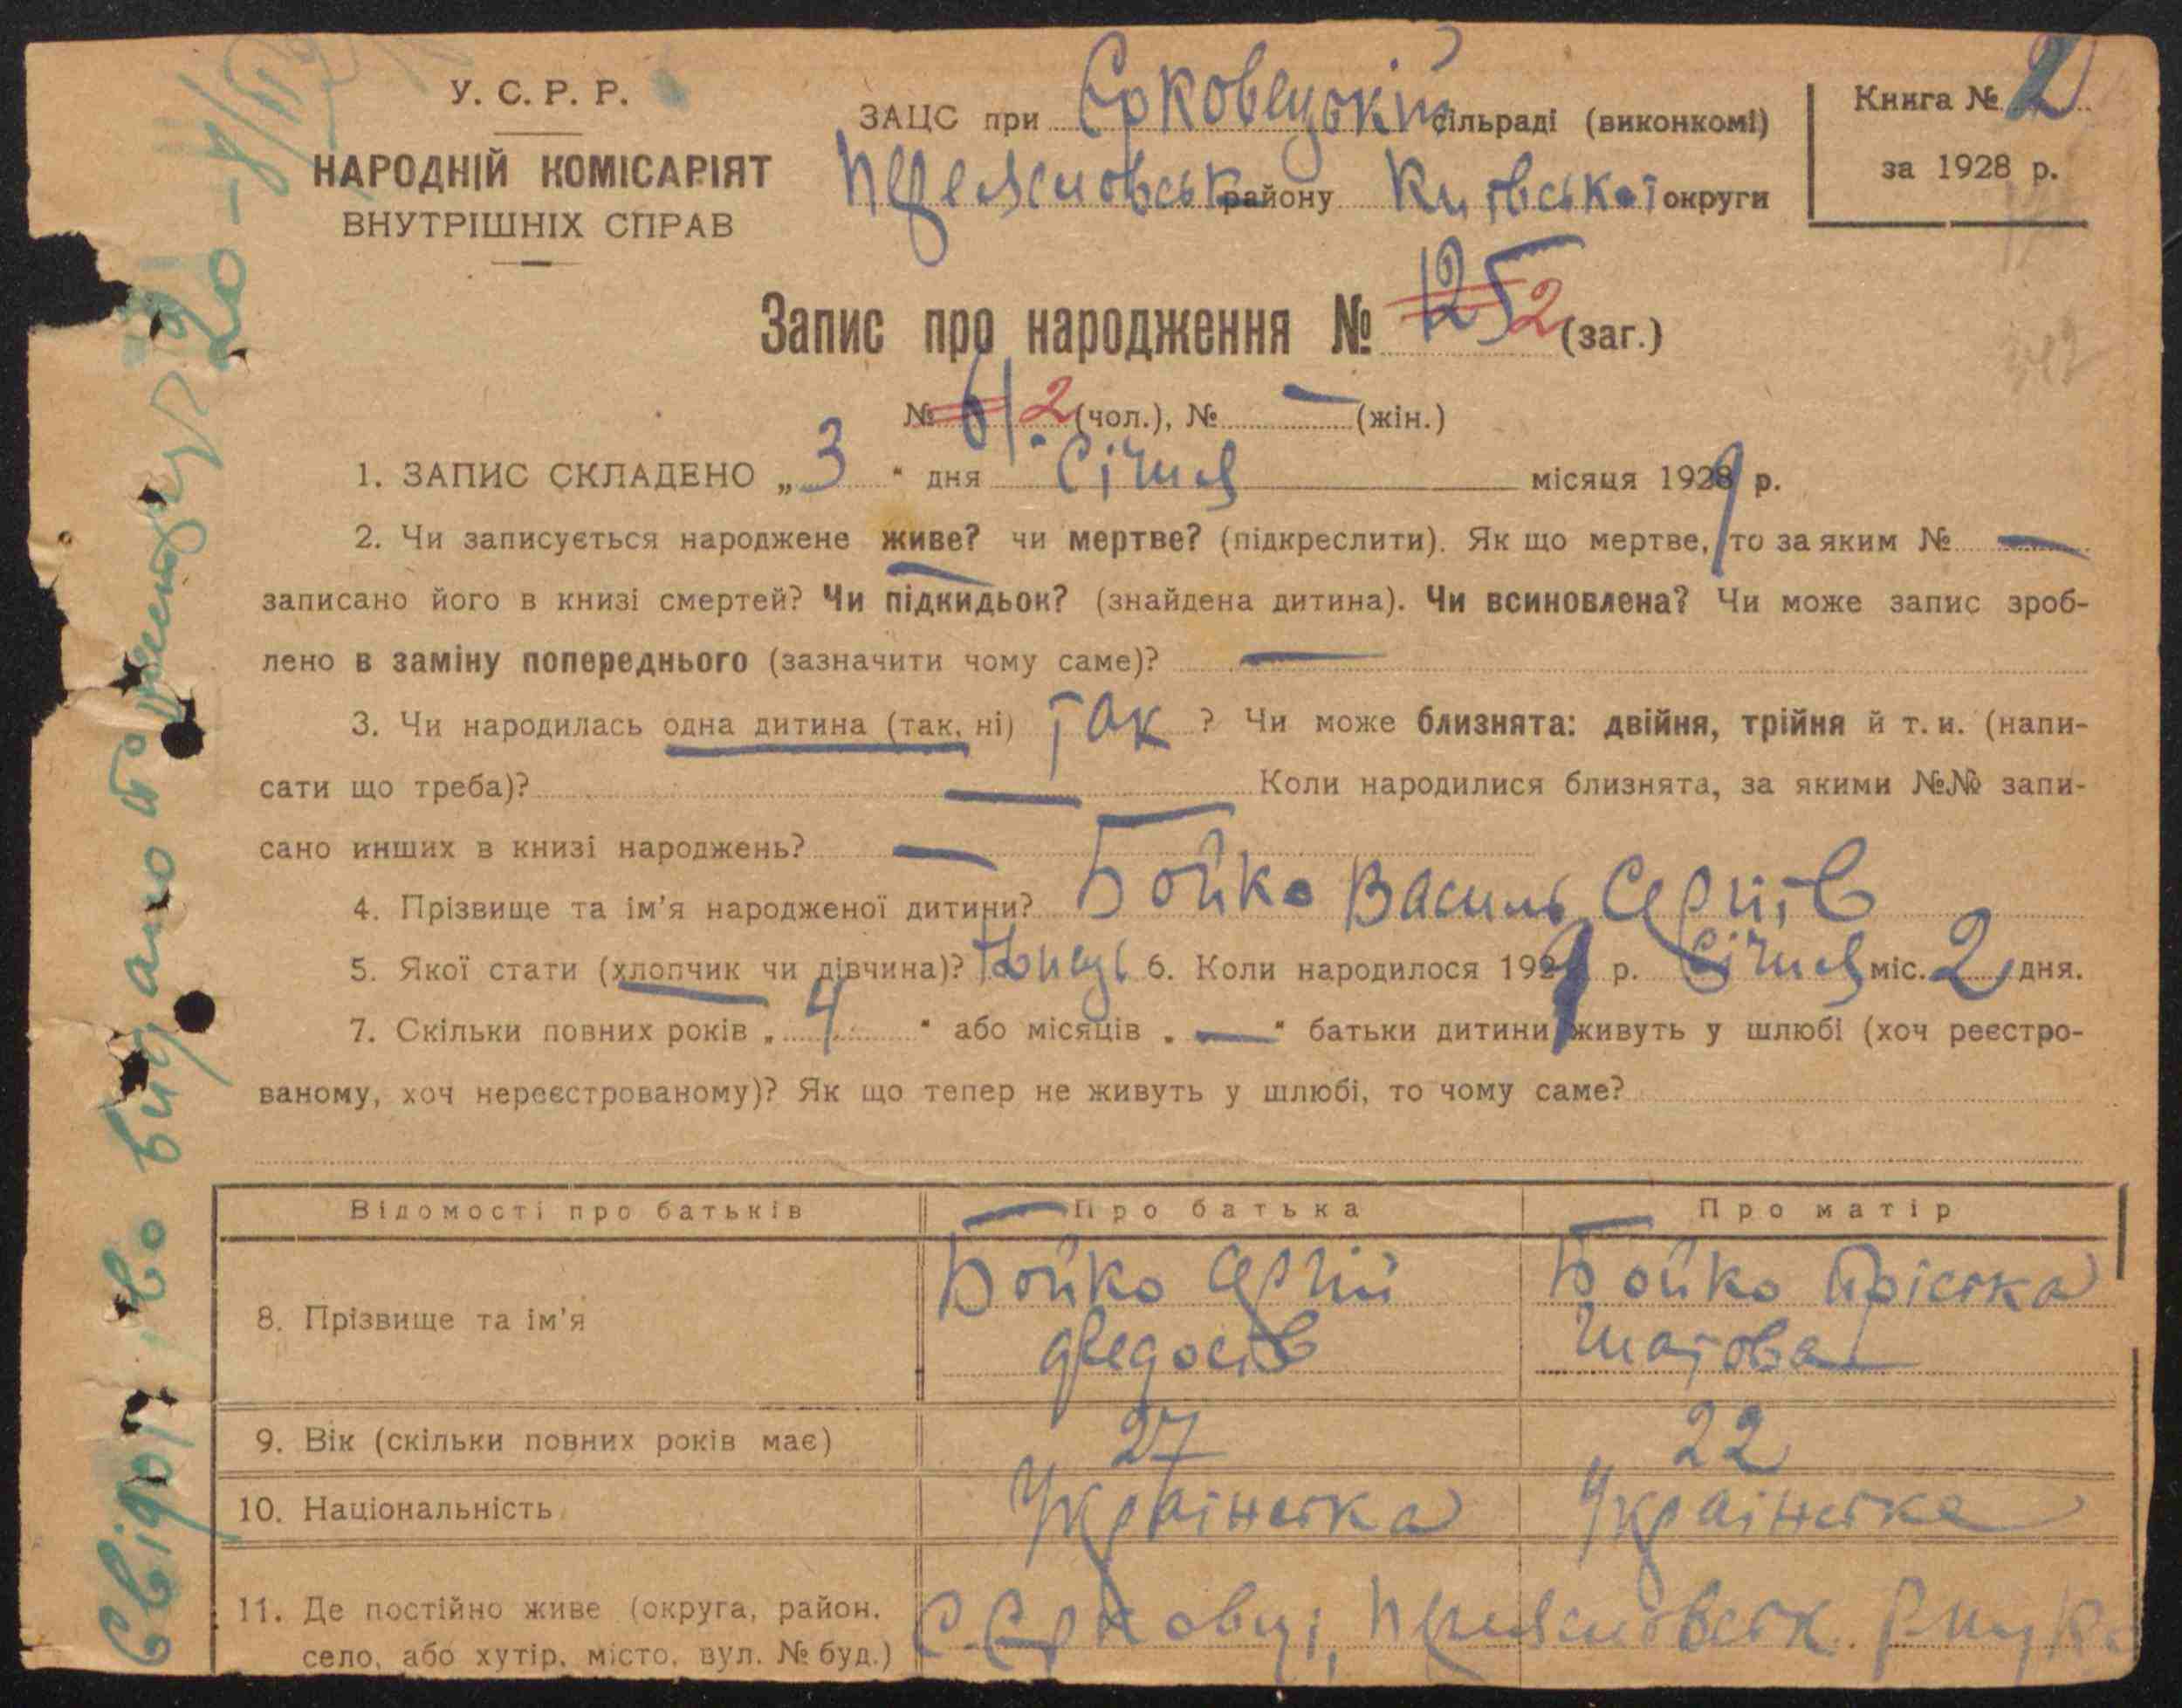 У. С. Р. Р.
НАРОДНІЙ КОМІСАРІЯТ
ВНУТРІШНІХ СПРАВ
ЗАЦС при Єрковецькій сільраді (виконкомі)
Переяславськ району Київської округи
Книга № 2
за 1928 р.
Запис про народження № 125 2 (заг.)
№ 61 2 (чол.), № — (жін.)
1. ЗАПИС СКЛАДЕНО „ 3 “ дня Січня місяця 1929 р.
2. Чи записується народжене живе? чи мертве? (підкреслити). Як що мертве, то за яким № —
записано його в книзі смертей? Чи підкидьок? (знайдена дитина). Чи всиновлена? Чи може запис зроб-
лено в заміну попереднього (зазначити чому саме)? —
3. Чи народилась одна дитина (так, ні) Так ? Чи може близнята: двійня, трійня й т. и. (напи-
сати що треба)? — Коли народилися близнята, за якими №№ запи-
сано инших в книзі народжень? —
4. Прізвище та ім'я народженої дитини? Бойко Василь Сергіїв
5. Якої стати (хлопчик чи дівчина)? 6. Коли народилося 1929 р. Січня міс. 2 дня.
7. Скільки повних років „ 4 “ або місяців „ — “ батьки дитини живуть у шлюбі (хоч реєстро-
ваному, хоч нереєстрованому)? Як що тепер не живуть у шлюбі, то чому саме?
Відомості про батьків Про батька Про матір
8. Прізвище та ім'я
Бойко Сергій
Федосів
Бойко Пріська
9. Вік (скільки повних років має) 27 22
10. Національність Українська Українська
11. Де постійно живе (округа, район,
село, або хутір, місто, вул. № буд.)
с. Єрковці, Переяславськ.
Свідоцтво видано
20
342